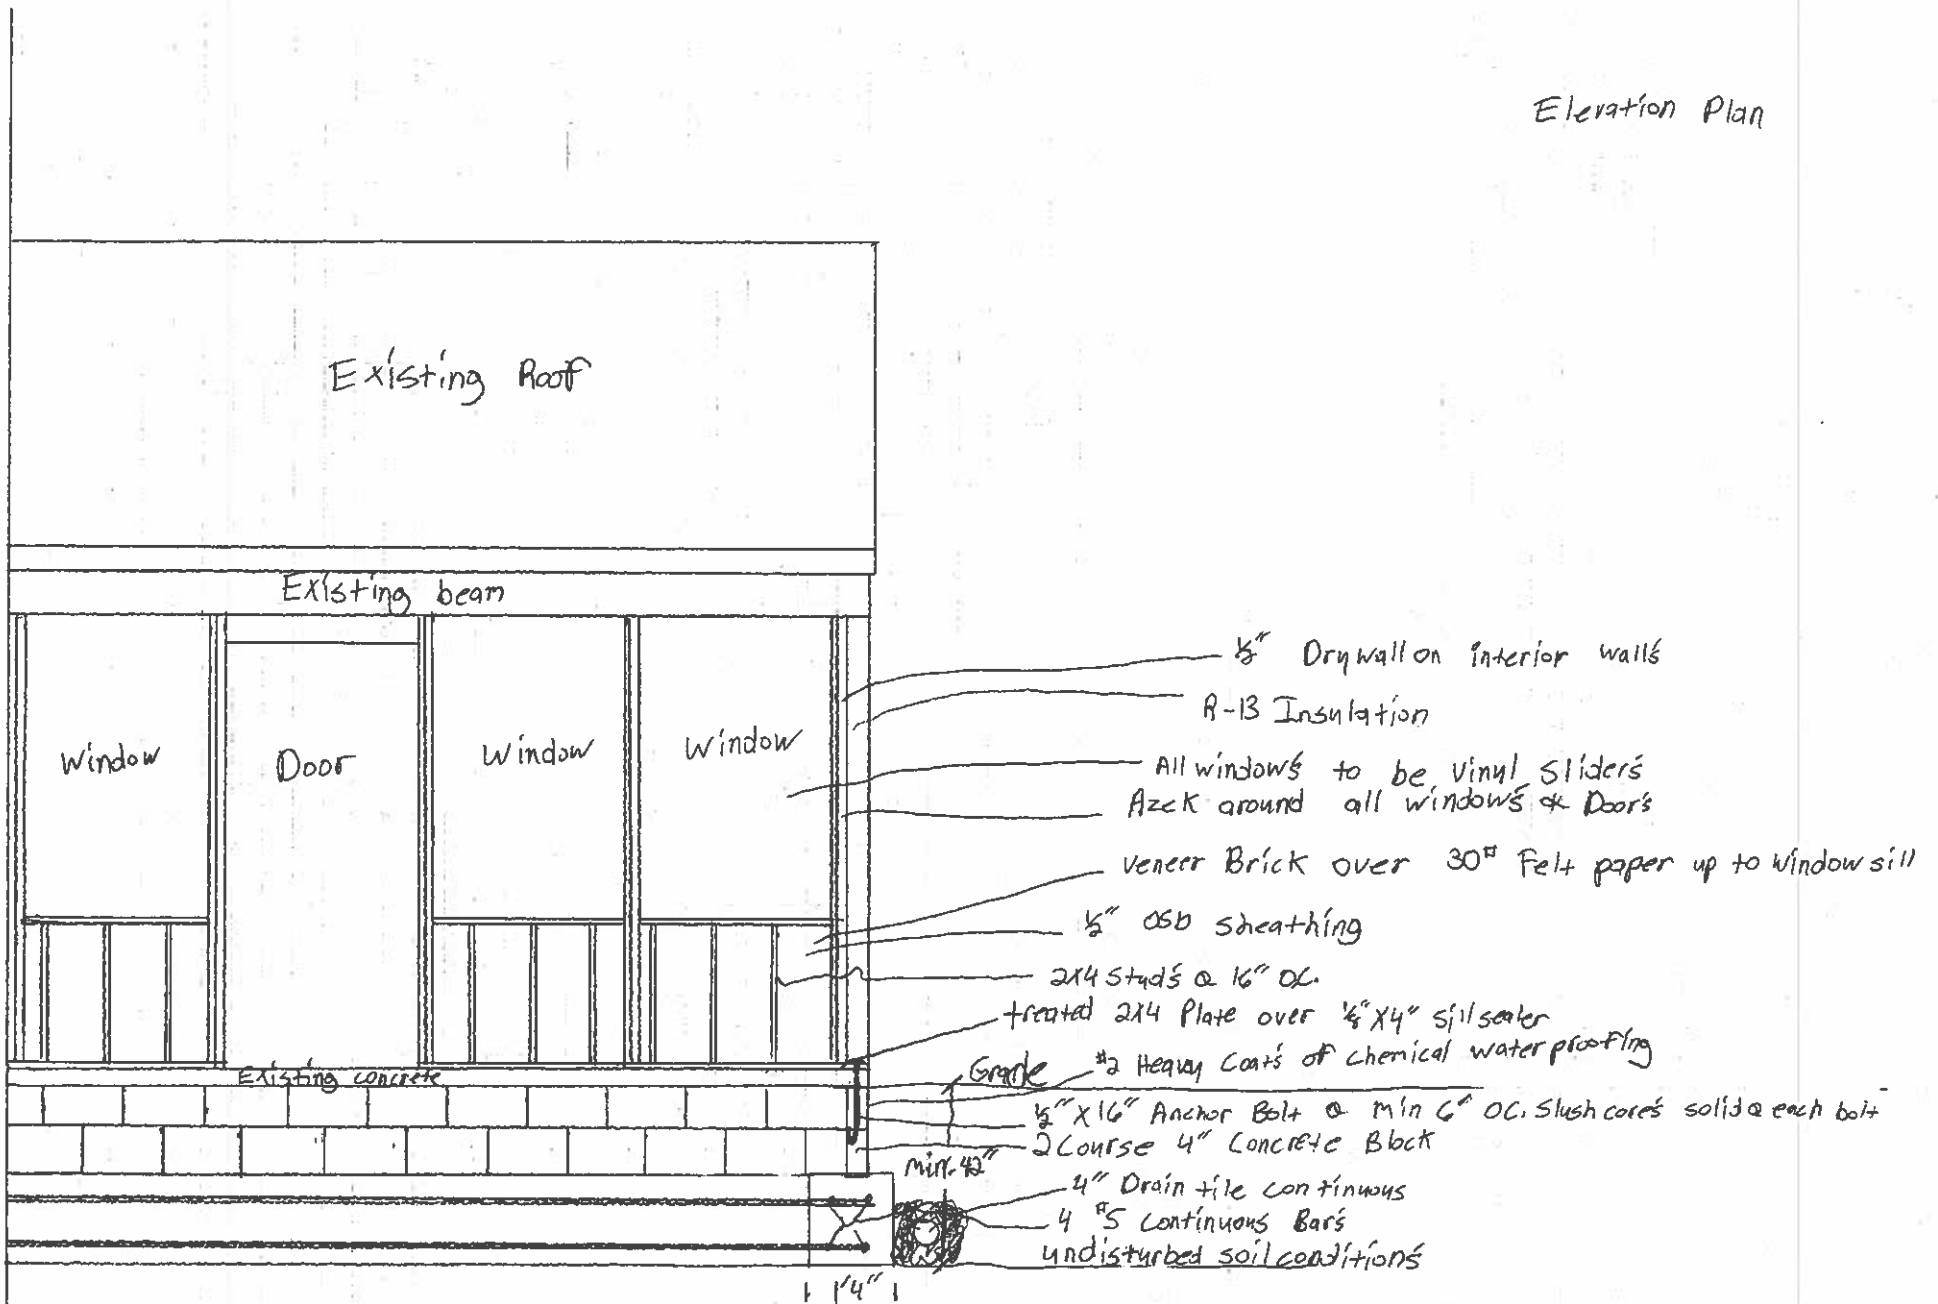 Elevation Plan
Existing Roof
Existing beam
Window
Door
Window
Window
½" Drywall on interior walls
R-13 Insulation
All windows to be Vinyl Sliders
Azek around all windows & Doors
Veneer Brick over 30# Felt paper up to window sill
½" OSB sheathing
2x4 studs @ 16" OC.
treated 2x4 Plate over X4" sill sealer
Existing concrete
Grade
#2 Heavy Coats of chemical waterproofing
½" X 16" Anchor Bolt @ min 6" OC. Slush cores solid @ each bolt
2 Course 4" Concrete Block
min. 42"
4" Drain tile continuous
4 #5 continuous Bars
undisturbed soil conditions
1'4"